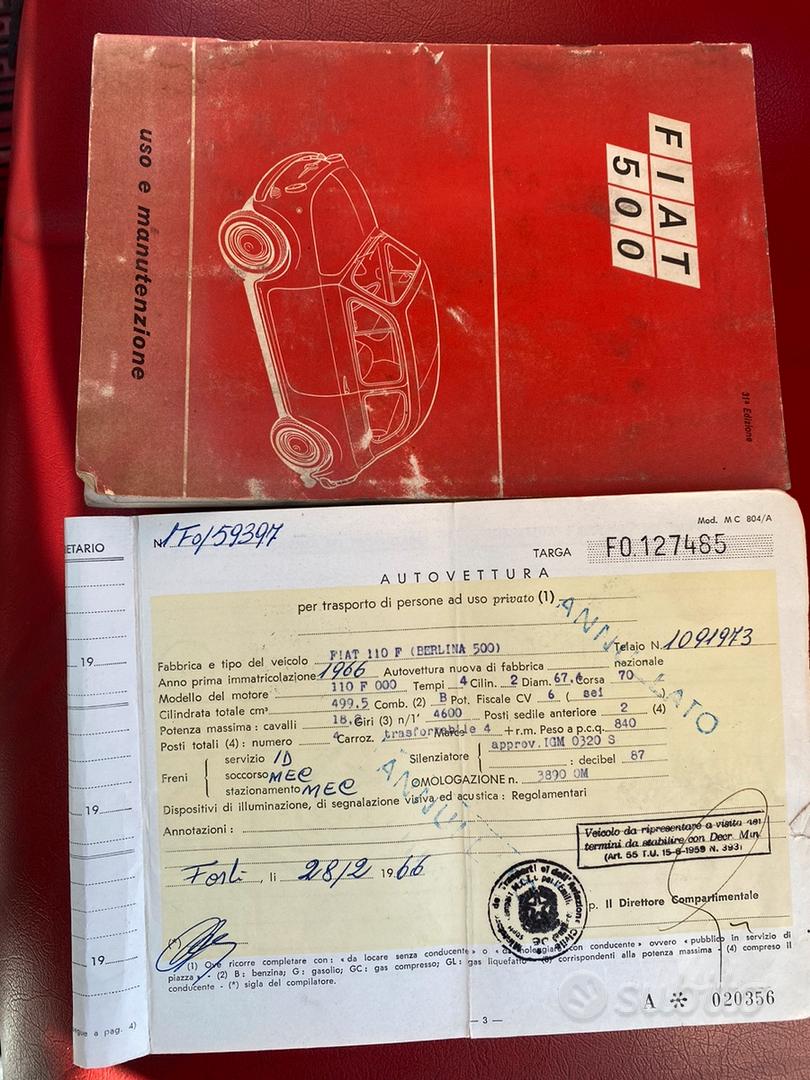 FIAT
500
uso e manutenzione
31ª Edizione
Mod. MC 804/A
ETARIO
N. 1Fo/59397
TARGA FO.127485
AUTOVETTURA
per trasporto di persone ad uso privato (1)
Fabbrica e tipo del veicolo FIAT 110 F (BERLINA 500) Telaio N. 1091973
Anno prima immatricolazione 1966 Autovettura nuova di fabbrica nazionale
Modello del motore 110 F 000 Tempi 4 Cilin. 2 Diam. 67,4 Corsa 70
Cilindrata totale cm³ 499.5 Comb. (2) B Pot. Fiscale CV 6 ( sei )
Potenza massima : cavalli 18, Giri (3) n/1' 4600 Posti sedile anteriore 2 (4)
Posti totali (4) : numero 4 Carroz. trasformabile 4 Marce + r.m. Peso a p.c.q. 840
Freni servizio ID
soccorso MEC
stazionamento MEC
Silenziatore approv. IGM 0320 S
: decibel 87
OMOLOGAZIONE n. 3890 OM
Dispositivi di illuminazione, di segnalazione visiva ed acustica : Regolamentari
Annotazioni :
ANNULLATO
Veicolo da ripresentare a visita nei
termini da stabilire con Decr. Min.
(Art. 55 T.U. 15-6-1959 N. 393)
Forlì, li 28/2 1966
p. Il Direttore Compartimentale
(*)
(1) Ove ricorre completare con: « da locare senza conducente » o « da noleggiare con conducente » ovvero « pubblico in servizio di
piazza » - (2) B : benzina; G : gasolio; GC : gas compresso; GL : gas liquefatto - (3) corrispondenti alla potenza massima - (4) compreso il
conducente - (*) sigla del compilatore.
A * 020356
— 3 —
19
19
19
segue a pag. 4)
subito